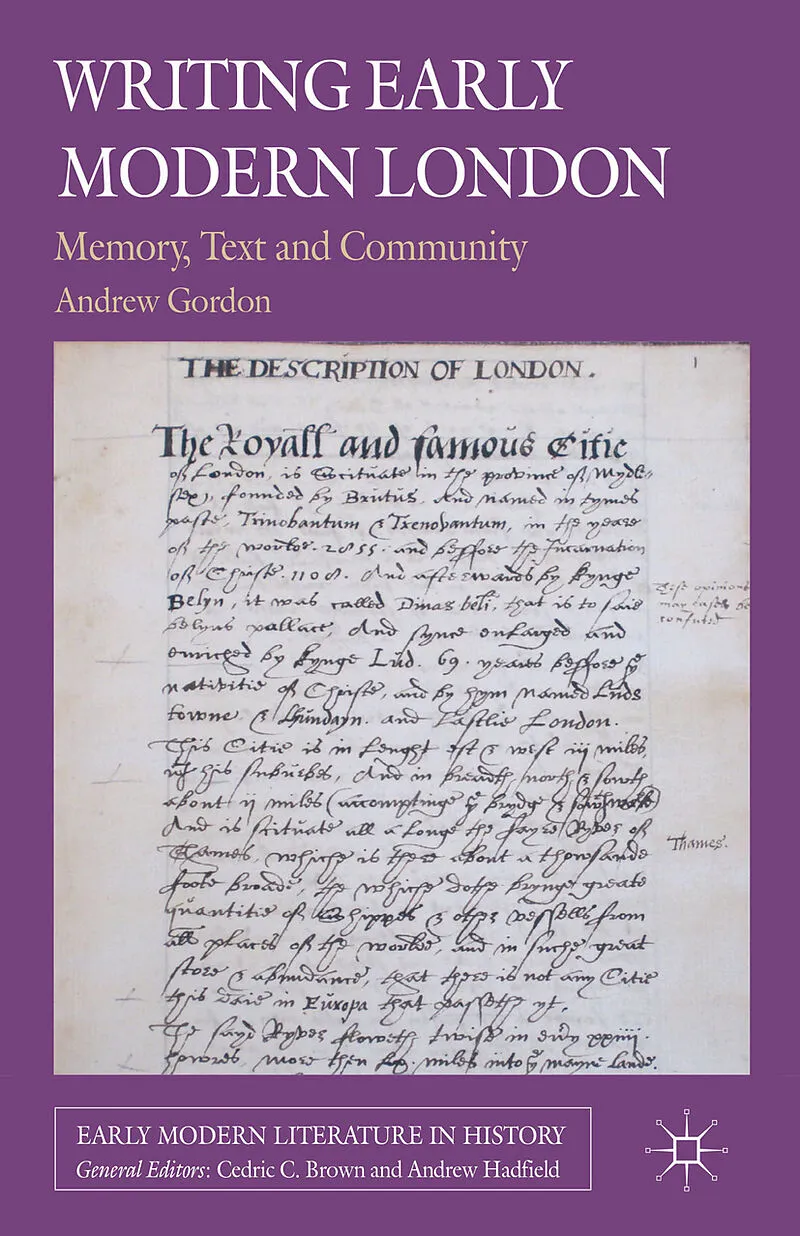 WRITING EARLY
MODERN LONDON
Memory, Text and Community
Andrew Gordon
THE DESCRIPTION OF LONDON.
1
The Royall and famous Citie
of London, is Scituate in the province of Mydle-
sex, founded by Brutus, And named in tymes
paste, Trinobantum & Trenovantum, in the yeare
of the worlde. 2855. and beffore the Incarnation
of Christe. 1108. And afterwards by kynge
Belyn, it was called Dinas beli, that is to saie
belyns pallace, And synce enlarged and
enriched by kynge Lud. 69. yeares beffore yͤ
nativitie of Christe, and by hym named Luds
towne & Lhundayn. and Lastlie London.
These opinions
may easely be
confuted
This Citie is in lenght est & west iij miles,
wͭh his suburbes, And in breadth north & sowth
about ij miles (accomptinge yͤ brydge & sowthwarke)
And is scituate all a longe the fayre Ryver of
Thames, whiche is there about a thowsande
Thames.
foote broade, the whiche dothe brynge greate
quantitie of Shippes & other vessells from
all places of the worlde, and in suche great
store & abundance, that there is not any Citie
this daie in Europa that passethe yt.
The sayd Ryver floweth twise in every xxiiij.
howres, more then miles into yͤ mayne lande.
EARLY MODERN LITERATURE IN HISTORY
General Editors: Cedric C. Brown and Andrew Hadfield